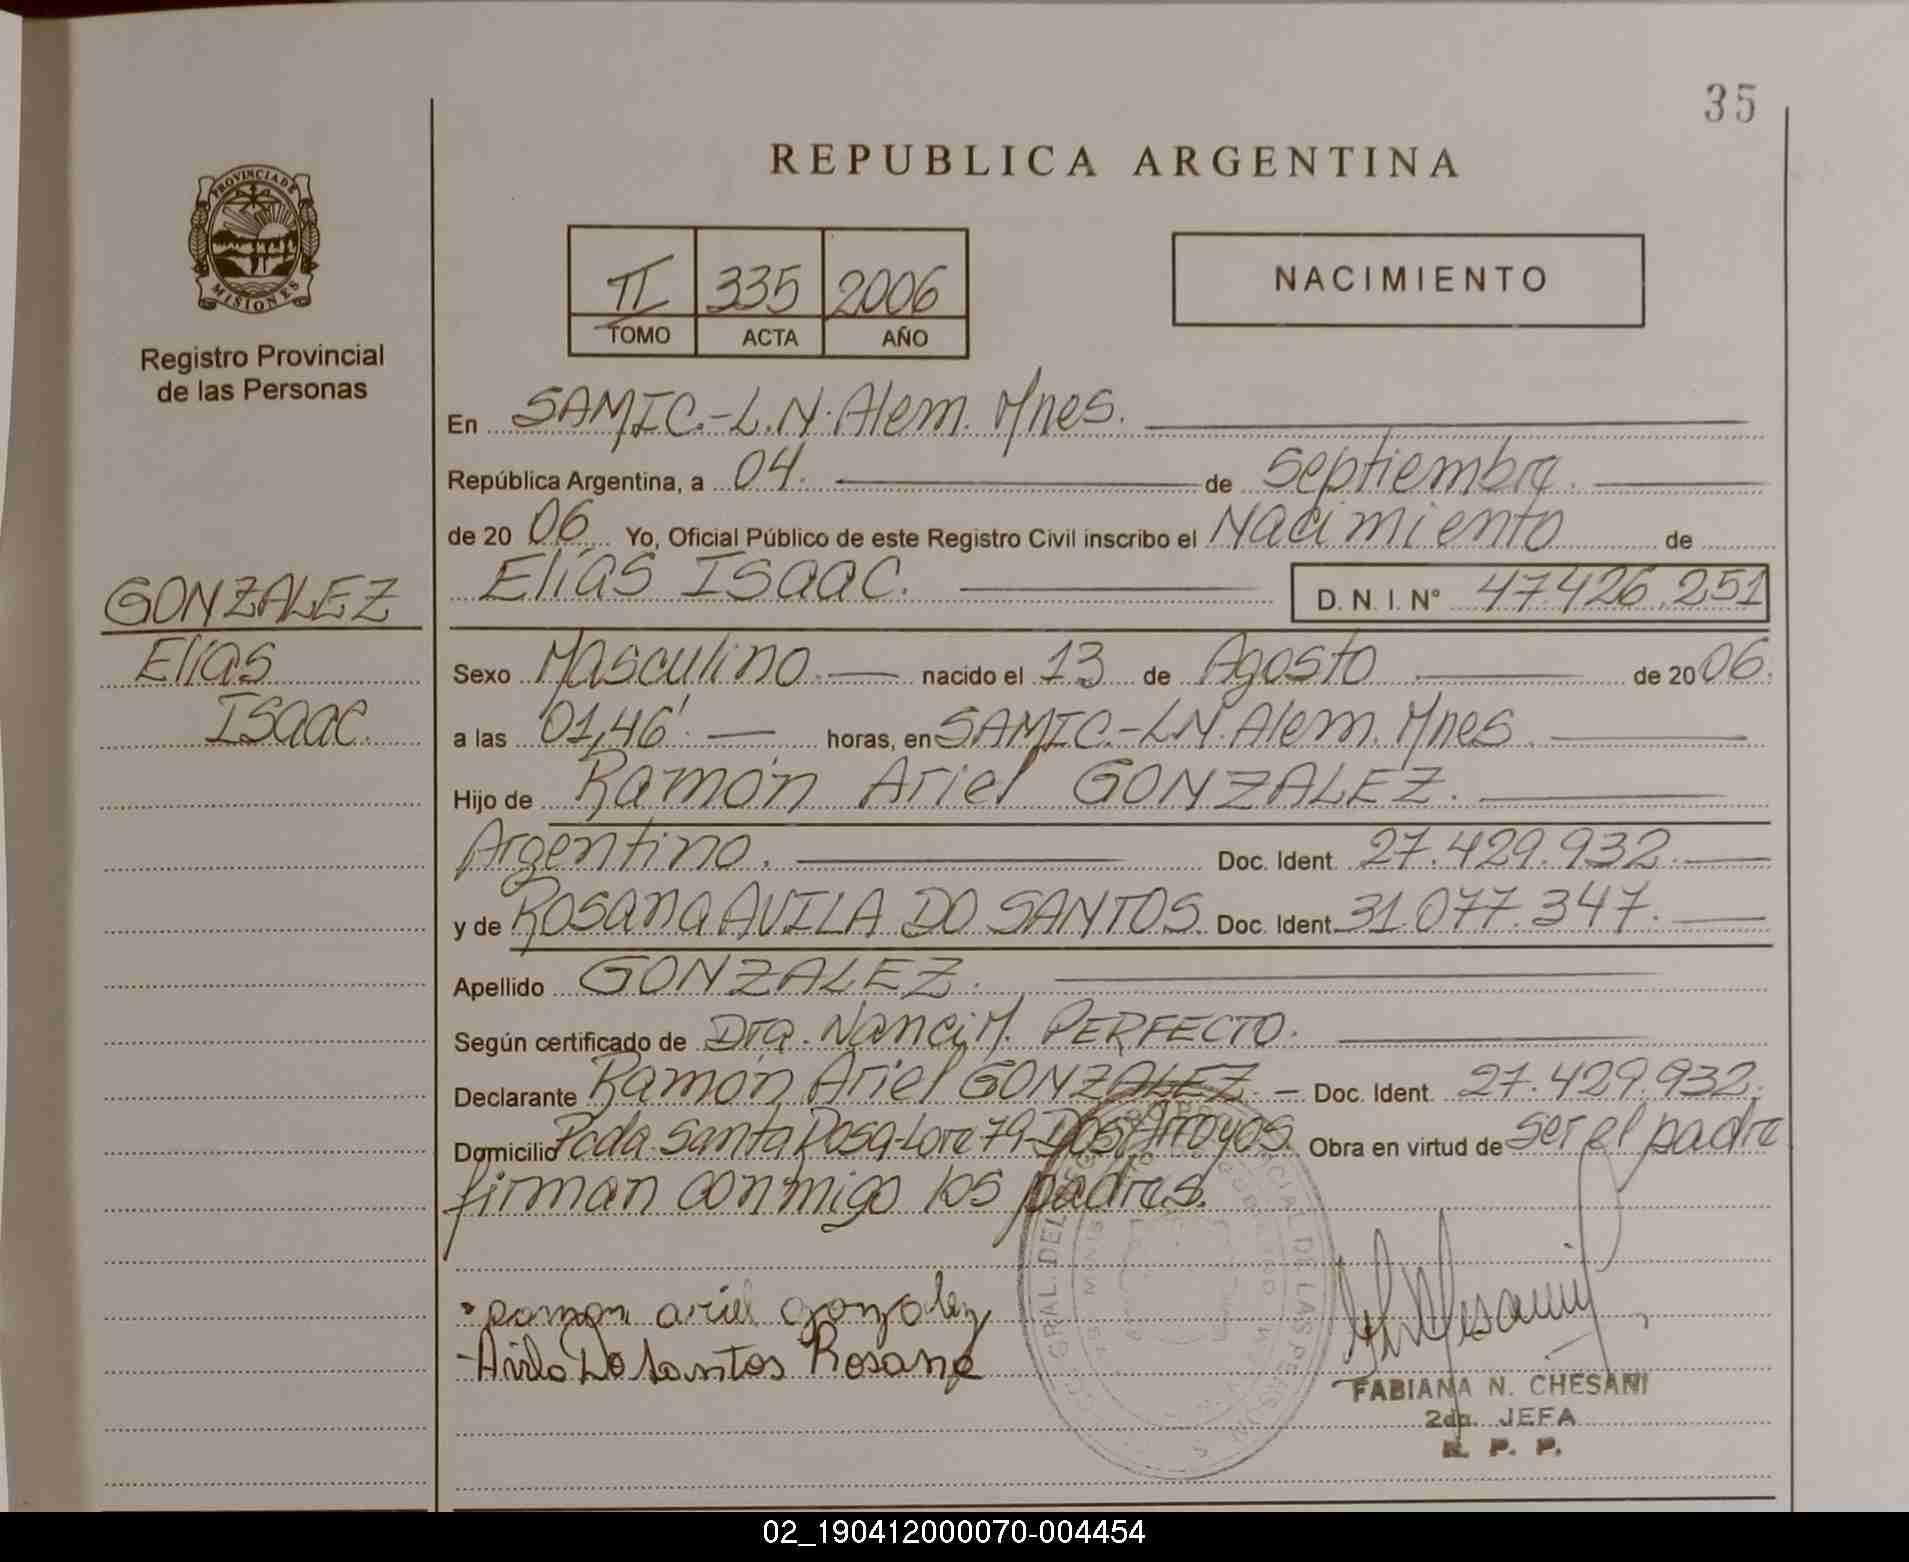 35
REPUBLICA ARGENTINA
PROVINCIA DE
MISIONES
Registro Provincial
de las Personas
II 335 2006
TOMO ACTA AÑO
NACIMIENTO
En SAMIC.-L.N. Alem. Mnes.
República Argentina, a 04. de Septiembre.
de 20 06 Yo, Oficial Público de este Registro Civil inscribo el Nacimiento de
Elías Isaac. D. N. I. Nº 47.426.251
GONZALEZ
Elías
Isaac.
Sexo Masculino. nacido el 13 de Agosto de 20 06.
a las 01,46'. horas, en SAMIC.-L.N. Alem. Mnes.
Hijo de Ramón Ariel GONZALEZ.
Argentino. Doc. Ident. 27.429.932.
y de Rosana AVILA DO SANTOS. Doc. Ident. 31.077.347.
Apellido GONZALEZ.
Según certificado de Dra. Nanci M. PERFECTO.
Declarante Ramón Ariel GONZALEZ. Doc. Ident. 27.429.932.
Domicilio Pcda. Santa Rosa-Lote 79-Dos Arroyos. Obra en virtud de ser el padre
firman conmigo los padres.
ramon ariel gonzalez
-Avila Do Santos Rosana
FABIANA N. CHESANI
2da. JEFA
R. P. P.
02_190412000070-004454